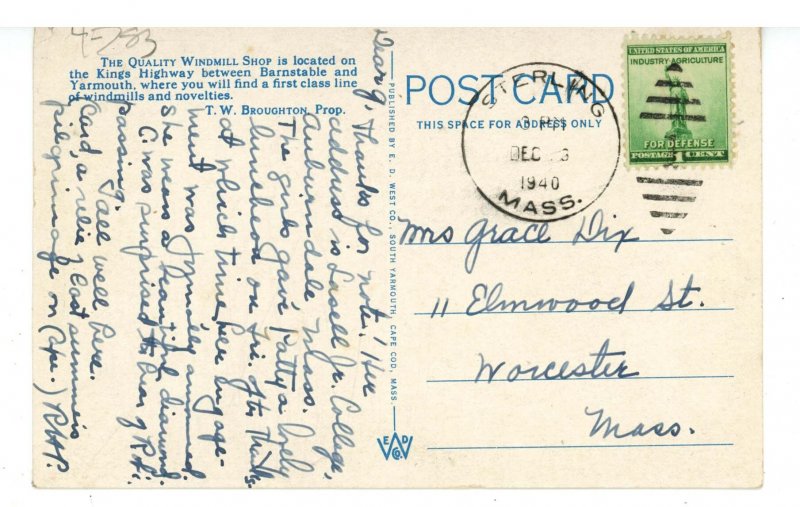 4-783
THE QUALITY WINDMILL SHOP is located on
the Kings Highway between Barnstable and
Yarmouth, where you will find a first class line
of windmills and novelties.
T. W. BROUGHTON, Prop.
Dear G, Thanks for note! Her
address is Lasell Jr. College,
Auburndale Mass.
The girls gave Patty a lovely
luncheon on Fri. after Thanks.
at which time her engage-
ment was formally announced.
She wears a beautiful diamond.
C. was surprised to hear of R.H.'s
passing.
All well here.
Card, a relic of last summer's
pilgrimage on Cape.) RHP.
PUBLISHED BY E. D. WEST CO., SOUTH YARMOUTH, CAPE COD, MASS.
POST CARD
THIS SPACE FOR ADDRESS ONLY
STERLING
DEC
1940
MASS.
UNITED STATES OF AMERICA
INDUSTRY AGRICULTURE
FOR DEFENSE
POSTAGE 1 CENT
Mrs Grace Dix
11 Elmwood St.
Worcester
Mass.
E D
W
CO.